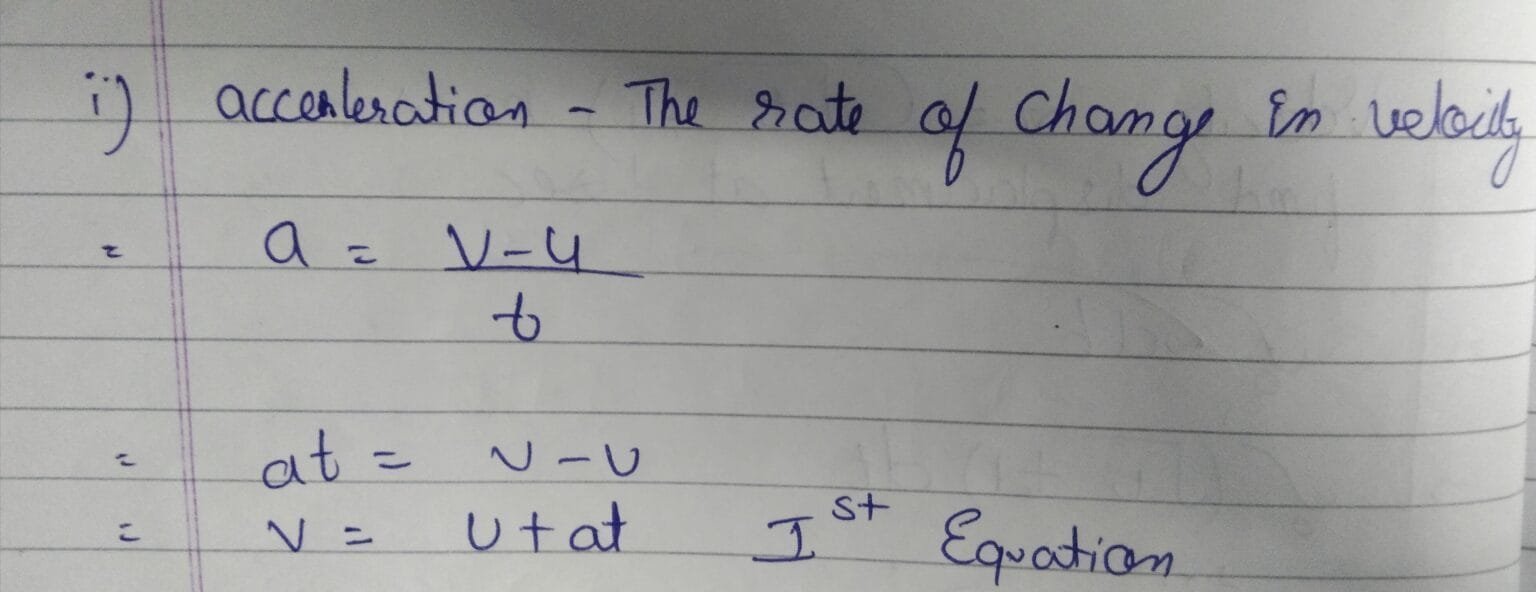 i) accenleration - The rate of Change in velocity
= a = v-u
t
= at = v-u
= v = u+at Ist Equation